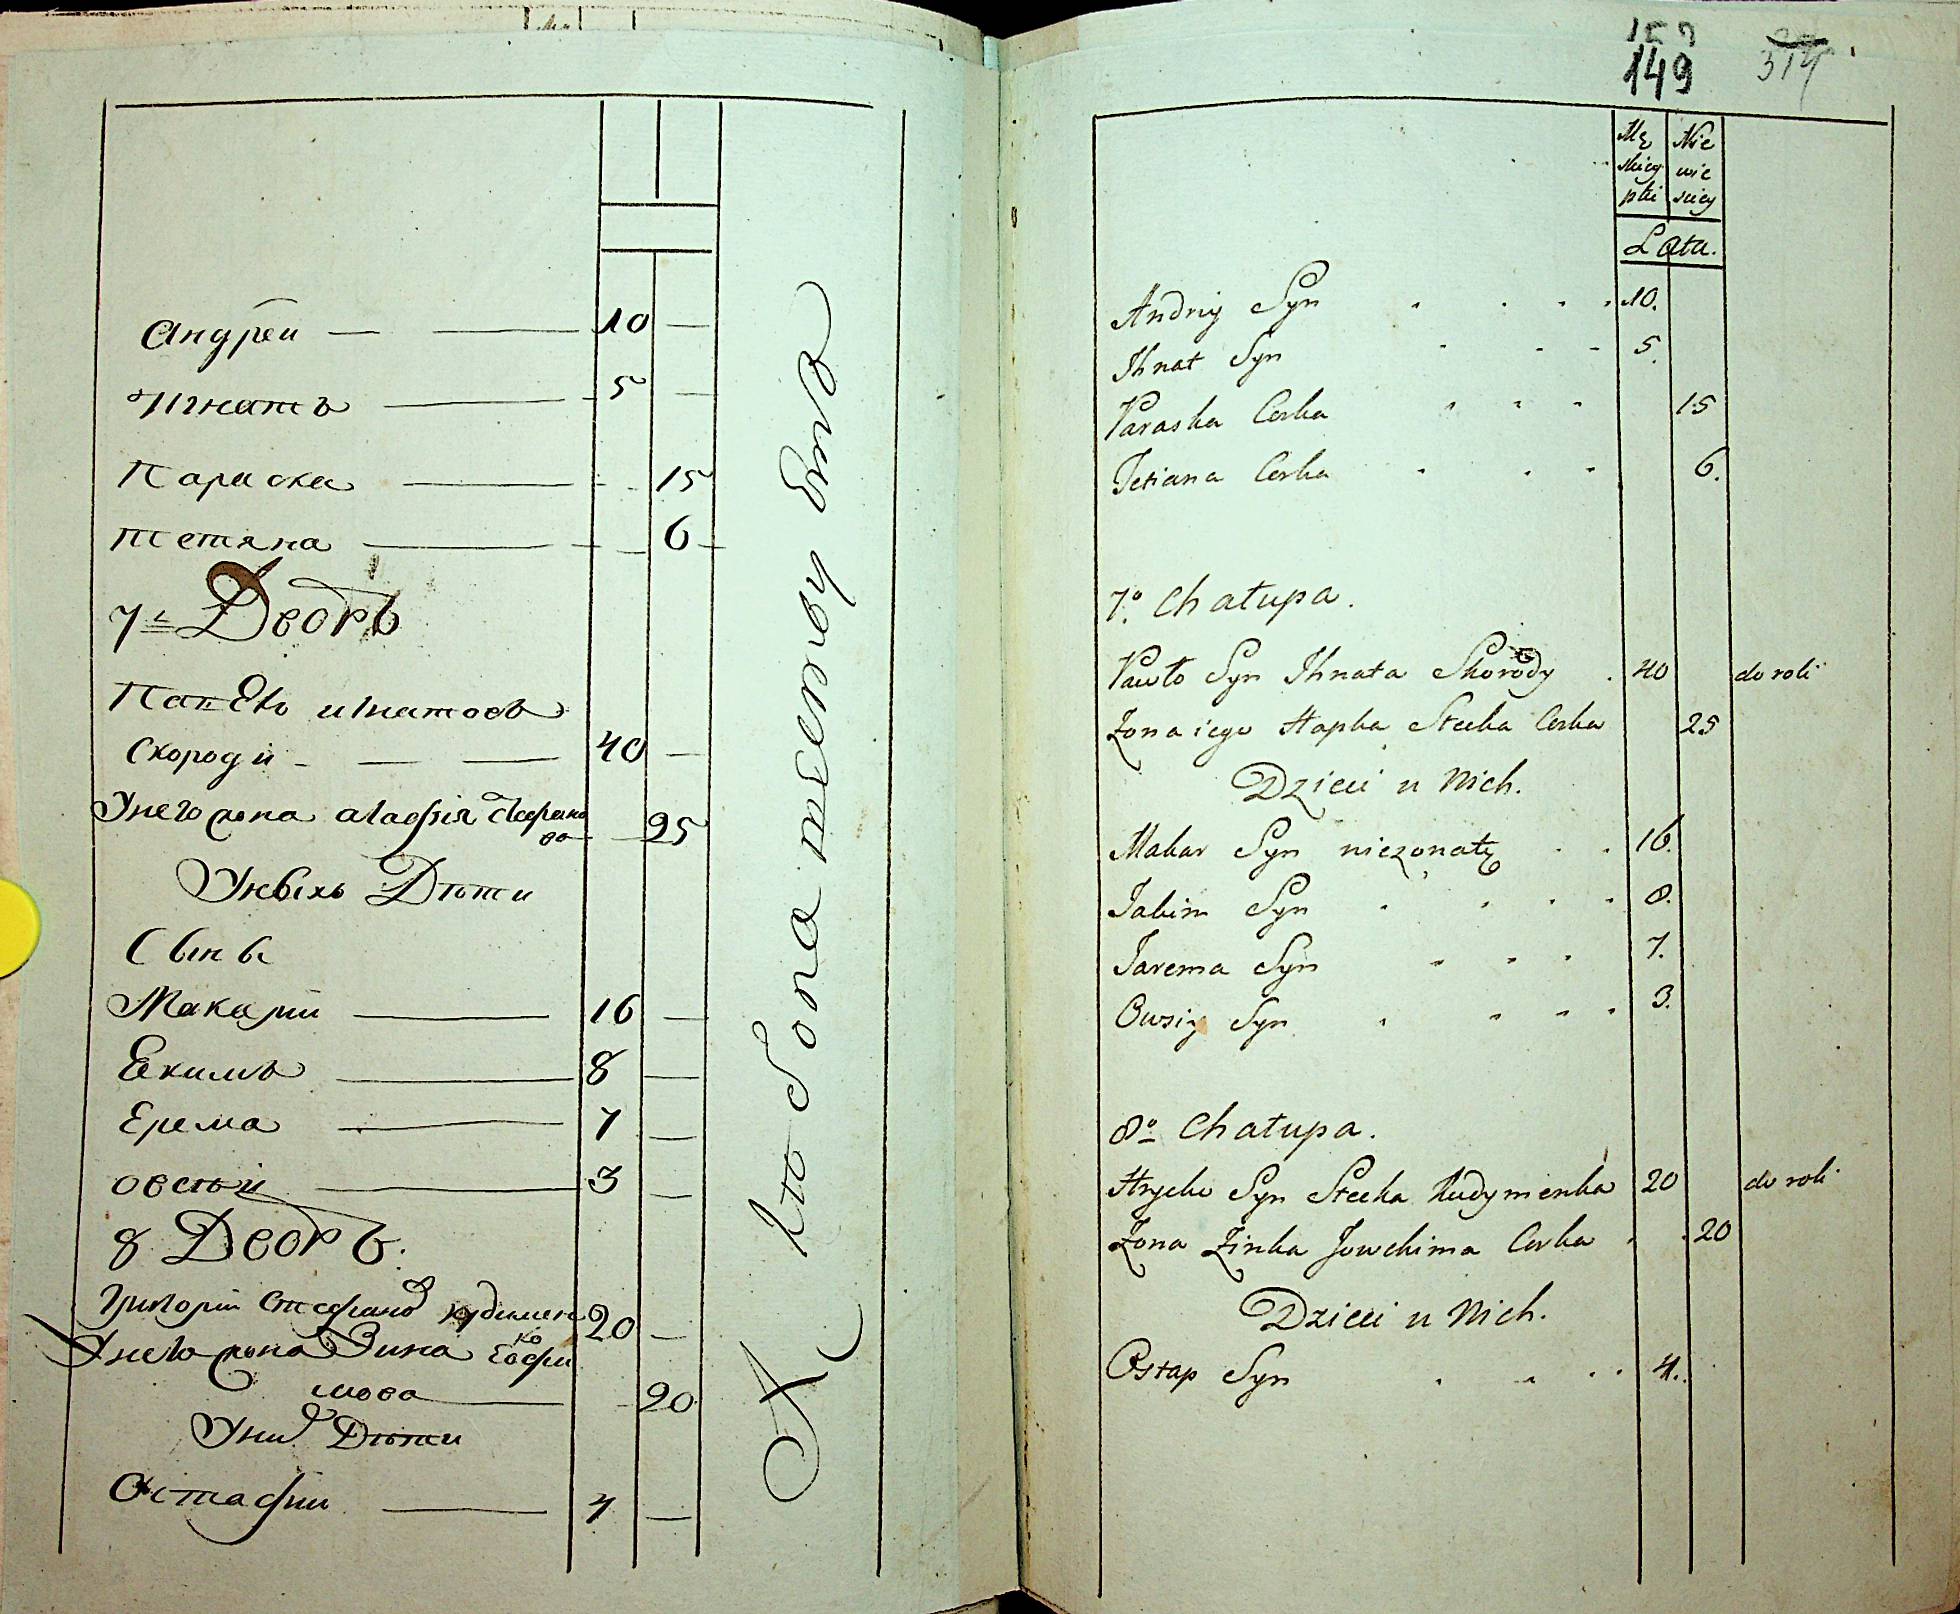 Андрей — — 10 —
Игнатъ — 5 —
Параска — 15
Тетяна — 6
7й Дворъ
Скороди - — — 40 —
25
Унихъ Дѣти
Сыны
Макарій — 16 —
Екимъ — 8 —
Ерема — 7 —
Овсѣй — 3 —
8 Дворъ.
Григорій Стефановъ Кудимен
ко 20 —
Унего жона Зина Евфи
мова — 20
Уних Дѣти
Остафій — 4 —
149
314
Mę Nie
skiey wie
płci sciey
Lata.
Andriy Syn 10.
Ihnat Syn 5.
Paraska Corka 15
Tetiana Corka 6.
7o. Chałupa.
Pawło Syn Ihnata Skorody 40 do roli
Zona iego Hapka Stecka Corka 25
Dzieci u Nich.
Makar Syn niezonaty 16.
Jakim Syn 8.
Jarema Syn 7.
Owsiy Syn 3.
8o Chałupa.
Hrycko Syn Stecka Kudymenka 20 do roli
Zona Zinka Jowchima Corka 20
Dzieci u Nich.
Ostap Syn 4.